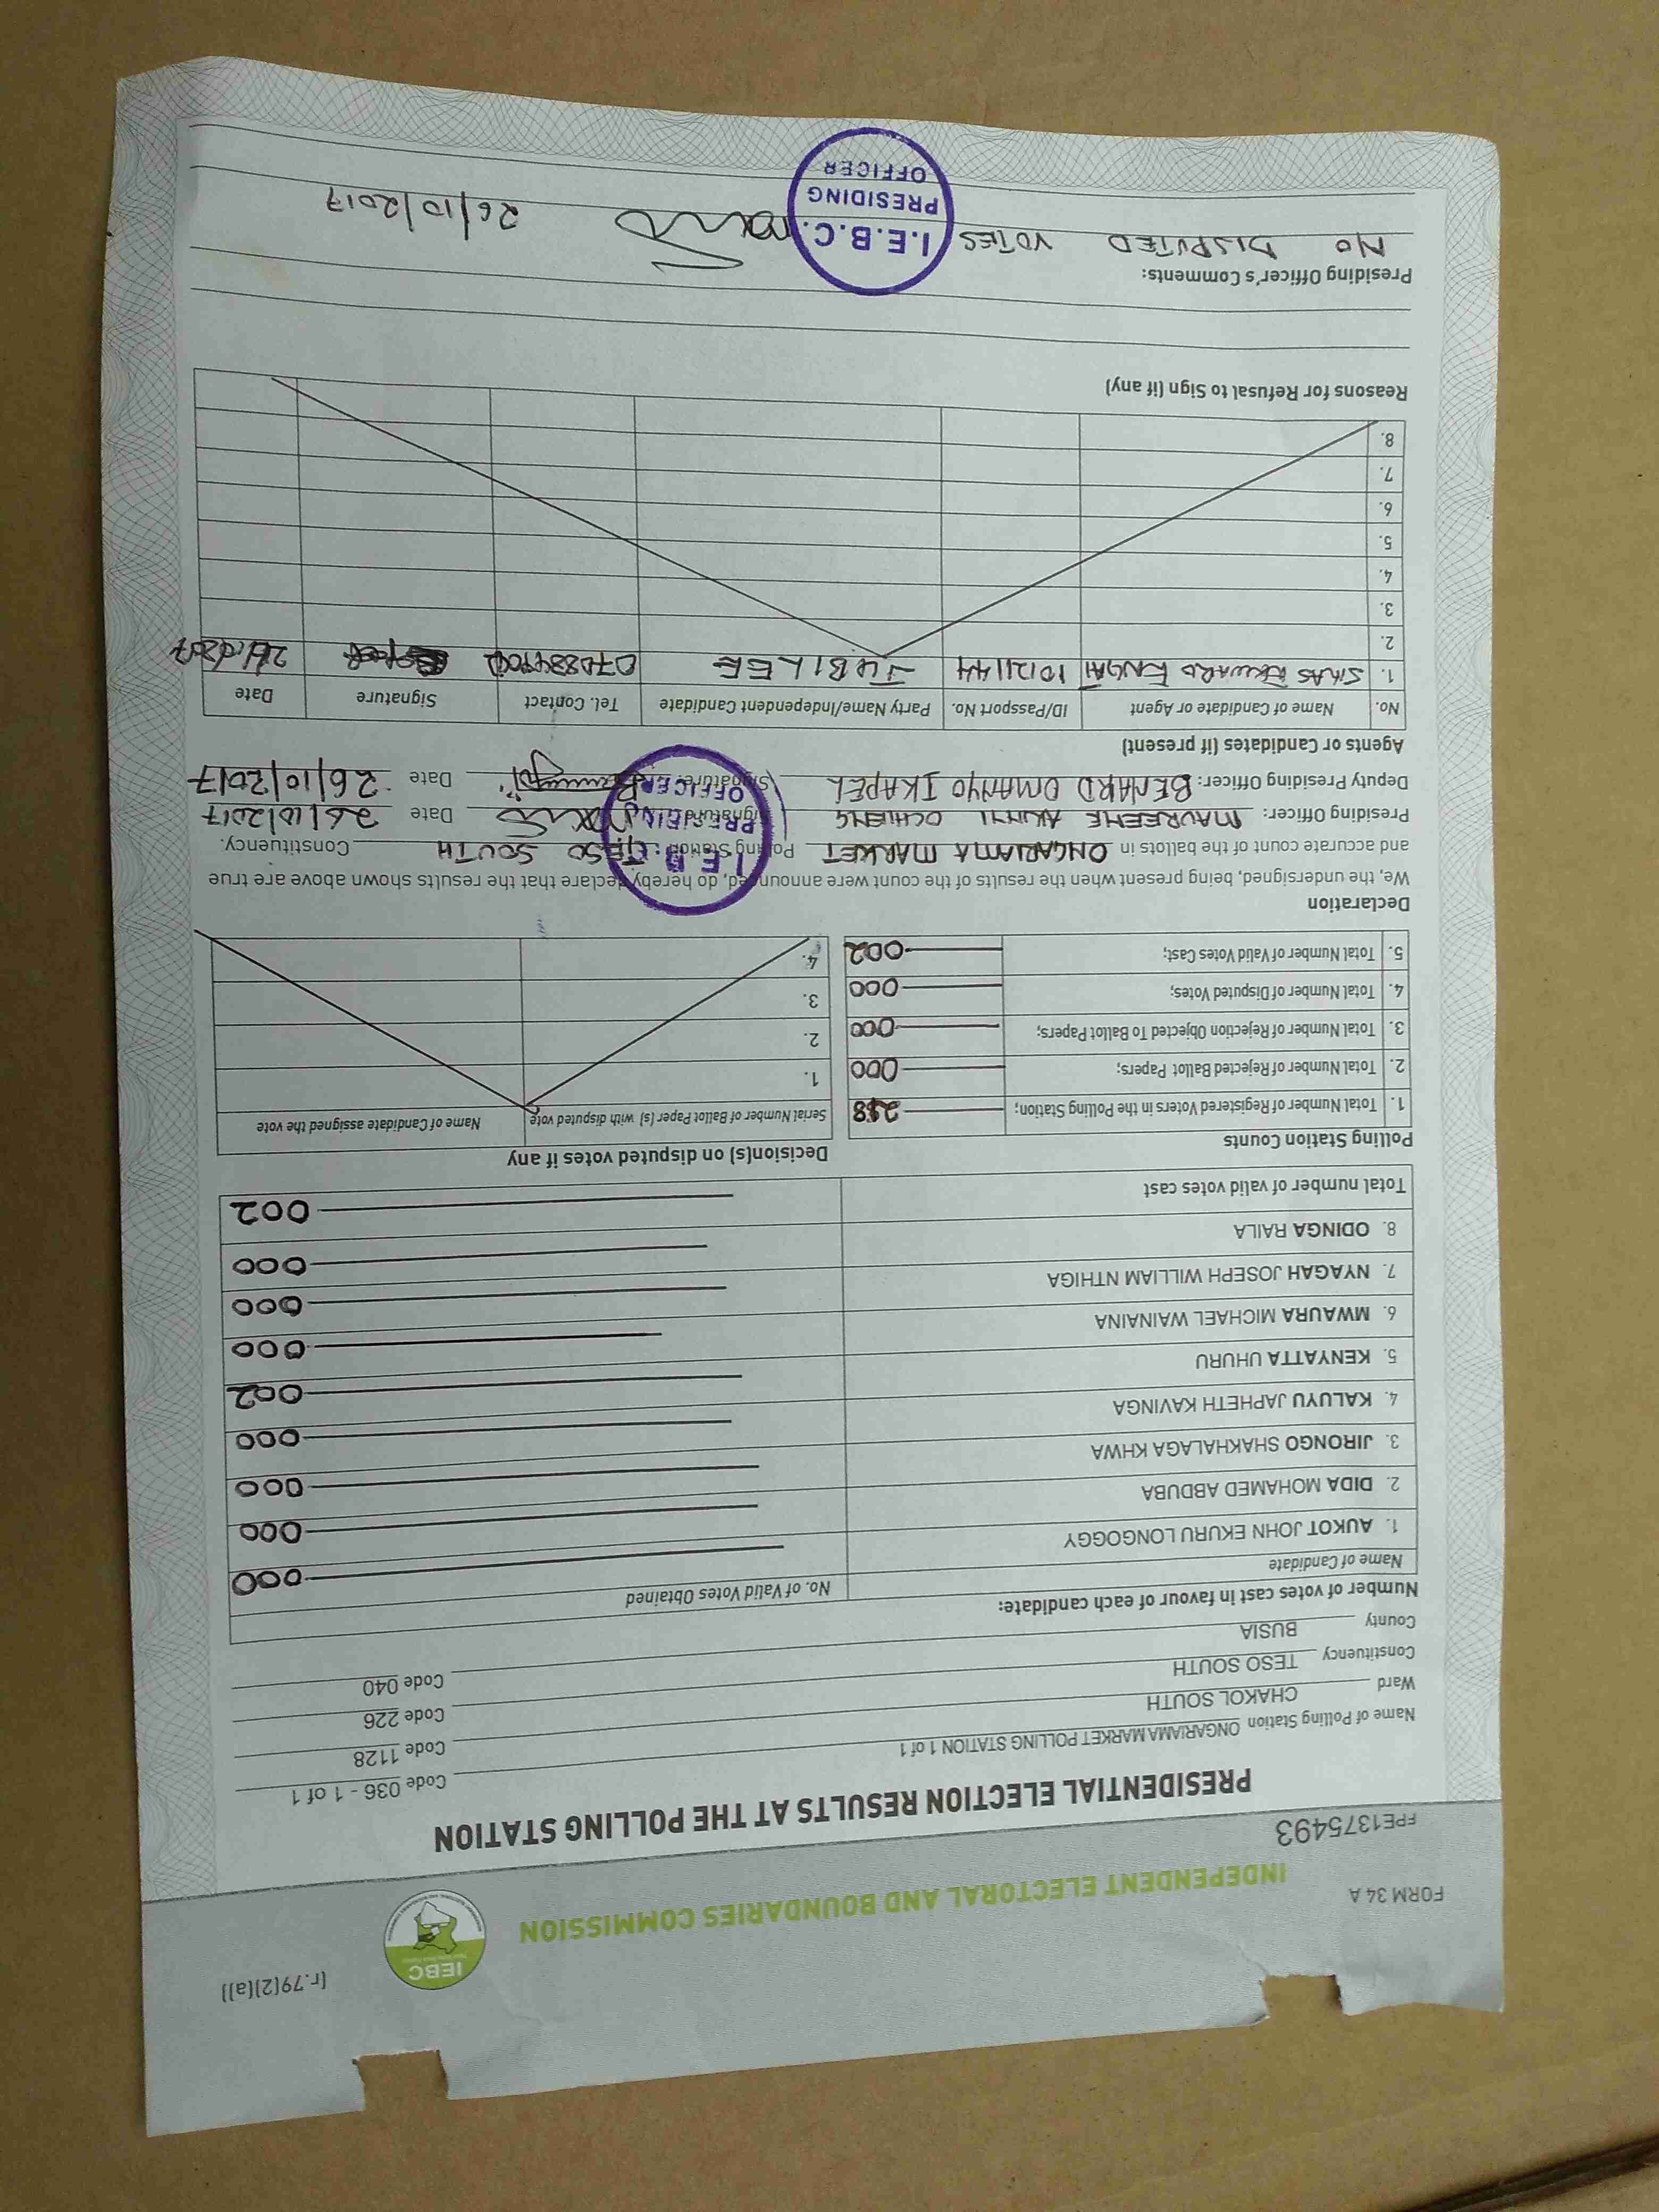 FORM 34 A
(r.79(2)(a))
IEBC
INDEPENDENT ELECTORAL AND BOUNDARIES COMMISSION
FPE1375493
PRESIDENTIAL ELECTION RESULTS AT THE POLLING STATION
Name of Polling Station ONGARIAMA MARKET POLLING STATION 1 of 1 Code 036 - 1 of 1
Ward CHAKOL SOUTH Code 1128
Constituency TESO SOUTH Code 226
County BUSIA Code 040
Number of votes cast in favour of each candidate:
Name of Candidate No. of Valid Votes Obtained
1. AUKOT JOHN EKURU LONGOGGY 000
2. DIDA MOHAMED ABDUBA 000
3. JIRONGO SHAKHALAGA KHWA 000
4. KALUYU JAPHETH KAVINGA 000
5. KENYATTA UHURU 002
6. MWAURA MICHAEL WAINAINA 000
7. NYAGAH JOSEPH WILLIAM NTHIGA 000
8. ODINGA RAILA 000
Total number of valid votes cast 002
Polling Station Counts
1. Total Number of Registered Voters in the Polling Station;
2. Total Number of Rejected Ballot Papers; 000
3. Total Number of Rejection Objected To Ballot Papers; 000
4. Total Number of Disputed Votes; 000
5. Total Number of Valid Votes Cast; 002
Decision(s) on disputed votes if any
Serial Number of Ballot Paper (s) with disputed vote Name of Candidate assigned the vote
1.
2.
3.
4.
Declaration
We, the undersigned, being present when the results of the count were announced, do hereby declare that the results shown above are true
and accurate count of the ballots in ONGARIAMA MARKET Polling Station: TESO SOUTH Constituency.
Presiding Officer: MAUREENE AKINYI OCHIENG Signature: Date 26/10/2017
Deputy Presiding Officer: BENARD OMANYO IKAPEL Signature: Date 26/10/2017
I.E.B.C.
PRESIDING
OFFICER
Agents or Candidates (if present)
No. Name of Candidate or Agent ID/Passport No. Party Name/Independent Candidate Tel. Contact Signature Date
1. SILAS 10121144 JUBILEE
2.
3.
4.
5.
6.
7.
8.
Reasons for Refusal to Sign (if any)
Presiding Officer's Comments:
NO DISPUTED VOTES 26/10/2017
I.E.B.C.
PRESIDING
OFFICER